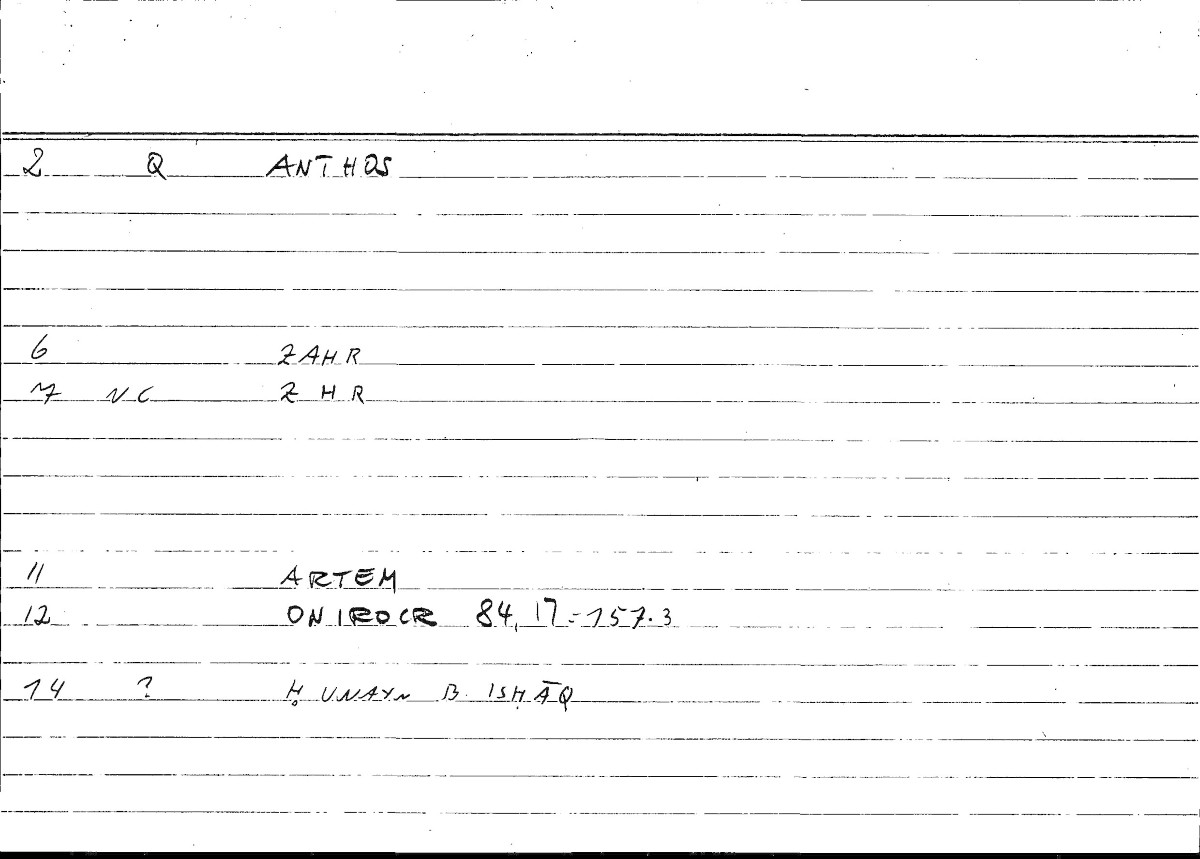 2 Q ANTHOS
6 ZAHR
7 NC Z H R
11 ARTEM
12 ONIROCR 84,17=157.3
14 ? ḤUNAYN B. ISḤĀQ